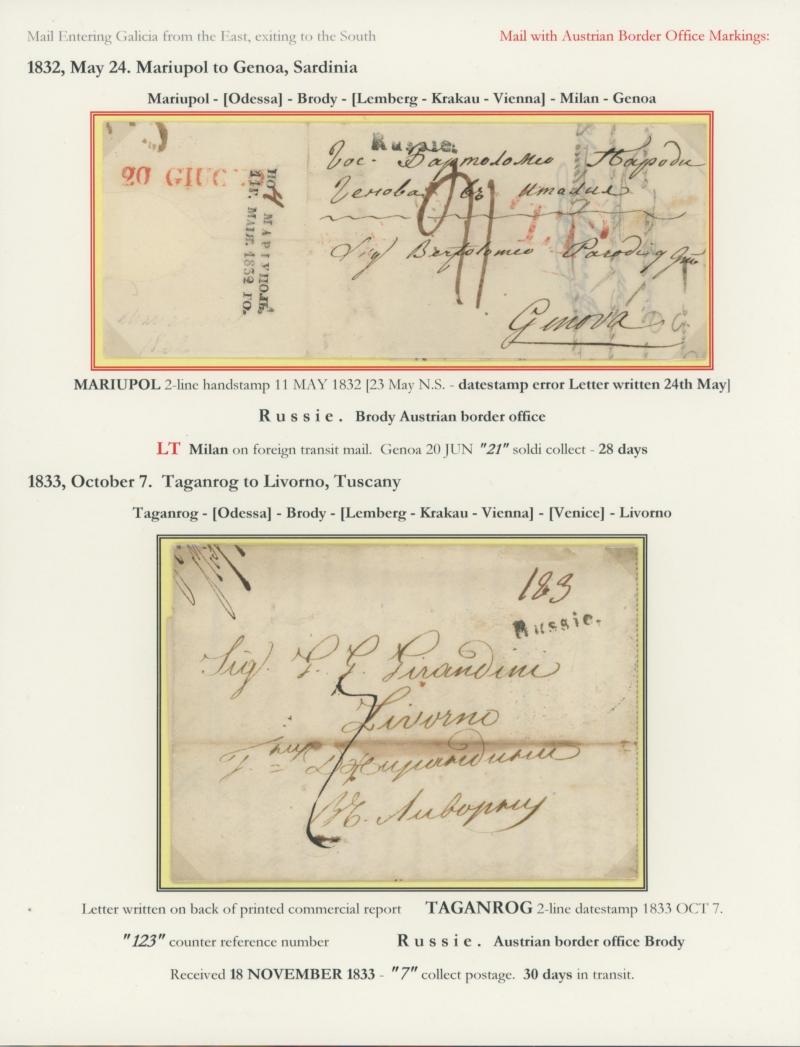 Mail Entering Galicia from the East, exiting to the South
Mail with Austrian Border Office Markings:
1832, May 24. Mariupol to Genoa, Sardinia
Mariupol - [Odessa] - Brody - [Lemberg - Krakau - Vienna] - Milan - Genoa
Russie.
20 GIUG
МАРІУПОЛЬ
МАІЯ. 1832 ГО.
Гос. Бартоломео Пароди
Генова въ Италия
Sig Bertolomeo Parodi q
Genova
MARIUPOL 2-line handstamp 11 MAY 1832 [23 May N.S. - datestamp error Letter written 24th May]
Russie. Brody Austrian border office
LT Milan on foreign transit mail. Genoa 20 JUN "21" soldi collect - 28 days
1833, October 7. Taganrog to Livorno, Tuscany
Taganrog - [Odessa] - Brody - [Lemberg - Krakau - Vienna] - [Venice] - Livorno
123
Russie.
Sig. G. G. Girandini
Livorno
7
Въ Ливорну
Letter written on back of printed commercial report TAGANROG 2-line datestamp 1833 OCT 7.
"123" counter reference number Russie. Austrian border office Brody
Received 18 NOVEMBER 1833 - "7" collect postage. 30 days in transit.